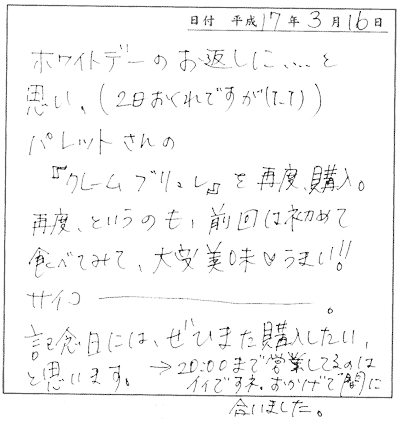 日付 平成17年3月16日
ホワイトデーのお返しに、、、、と
思い、(2日おくれですが(T_T))
パレットさんの
『クレームブリュレ』を再度、購入。
再度、というのも、前回は初めて
食べてみて、大変美味♥うまい!!
サイコー――――――。
記念日には、ぜひまた購入したい、
と思います。→20:00まで営業してるのは
イイですネ。おかげで間に
合いました。